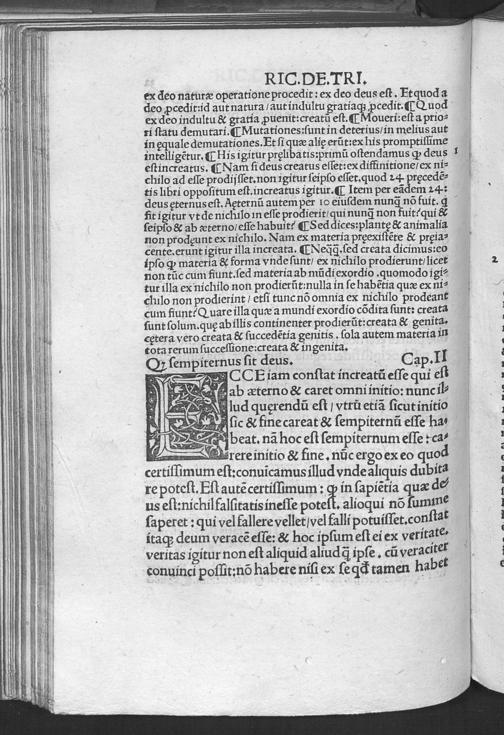 RIC.DE.TRI.
ex deo naturæ operatione procedit: ex deo deus est. Et quod a
deo ꝓcedit: id aut natura / aut indultu gratiaqꝫ ꝓcedit. ¶ Quod
ex deo indultu & gratia ꝓuenit: creatū est. ¶ Moueri: est a prio-
ri statu demutari. ¶ Mutationes: sunt in deterius / in melius aut
in equale demutationes. Et si quæ alię erūt: ex his promptissime
intelligētur. ¶ His igitur pręlibatis: primū ostendamus ꝙ deus
est increatus. ¶ Nam si deus creatus esset: ex diffinitione / ex ni-
chilo ad esse prodijsset. non igitur seipso esset. quod 24 pręcedē-
tis libri oppositum est. increatus igitur. ¶ Item per eādem 24:
deus ęternus est. Aęternū autem per 10 eiusdem nunꝙ nō fuit. ꝙ
fit igitur vt de nichilo in esse prodierit / qui nunꝙ non fuit? qui &
seipso & ab æterno / esse habuit? ¶ Sed dices: plantę & animalia
non prodeunt ex nichilo. Nam ex materia pręexistēte & pręia-
cente. erunt igitur illa increata. ¶ Neqꝙ. sed creata dicimus: eo
ipso ꝙ materia & forma vnde sunt / ex nichilo prodierunt / licet
non tūc cum fiunt. sed materia ab mūdi exordio. quomodo igi-
tur illa ex nichilo non prodierūt: nulla in se habētia quæ ex ni-
chilo non prodierint / etsi tunc nō omnia ex nichilo prodeant
cum fiunt? Quare illa quæ a mundi exordio cōdita sunt: creata
sunt solum. quę ab illis continenter prodierūt: creata & genita.
cętera vero creata & succedētia genitis. sola autem materia in
tota rerum successione: creata & ingenita.
1
2
Qꝫ sempiternus sit deus. Cap. II
ECCE iam constat increatū esse qui est
ab æterno & caret omni initio: nunc il-
lud quęrendū est / vtrū etiā sicut initio
sic & fine careat & sempiternū esse ha-
beat. nā hoc est sempiternum esse: ca-
rere initio & fine. nūc ergo ex eo quod
certissimum est: conuicamus illud vnde aliquis dubita
re potest. Est autē certissimum: ꝙ in sapiētia quæ de-
us est: nichil falsitatis inesse potest. alioqui nō summe
saperet: qui vel fallere vellet / vel falli potuisset. constat
itaqꝫ deum veracē esse: & hoc ipsum est ei ex veritate.
veritas igitur non est aliquid aliud q̄ ipse. cū veraciter
conuinci possit: nō habere nisi ex se qđ tamen habet